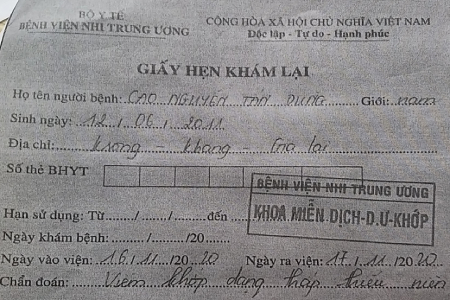 BỘ Y TẾ
BỆNH VIỆN NHI TRUNG ƯƠNG
CỘNG HÒA XÃ HỘI CHỦ NGHĨA VIỆT NAM
Độc lập - Tự do - Hạnh phúc
GIẤY HẸN KHÁM LẠI
Họ tên người bệnh: CAO NGUYÊN TẤN DŨNG Giới: nam
Sinh ngày: 12 / 06 / 2011
Địa chỉ: Krong - Kbang - Gia lai
Số thẻ BHYT
BỆNH VIỆN NHI TRUNG ƯƠNG
KHOA MIỄN DỊCH-D.Ư-KHỚP
Hạn sử dụng: Từ....../....../......đến
Ngày khám bệnh:....../....../20......
Ngày vào viện: 16 / 11 / 2020 Ngày ra viện: 17 / 11 / 2020
Chẩn đoán: Viêm khớp dạng thấp thiếu niên